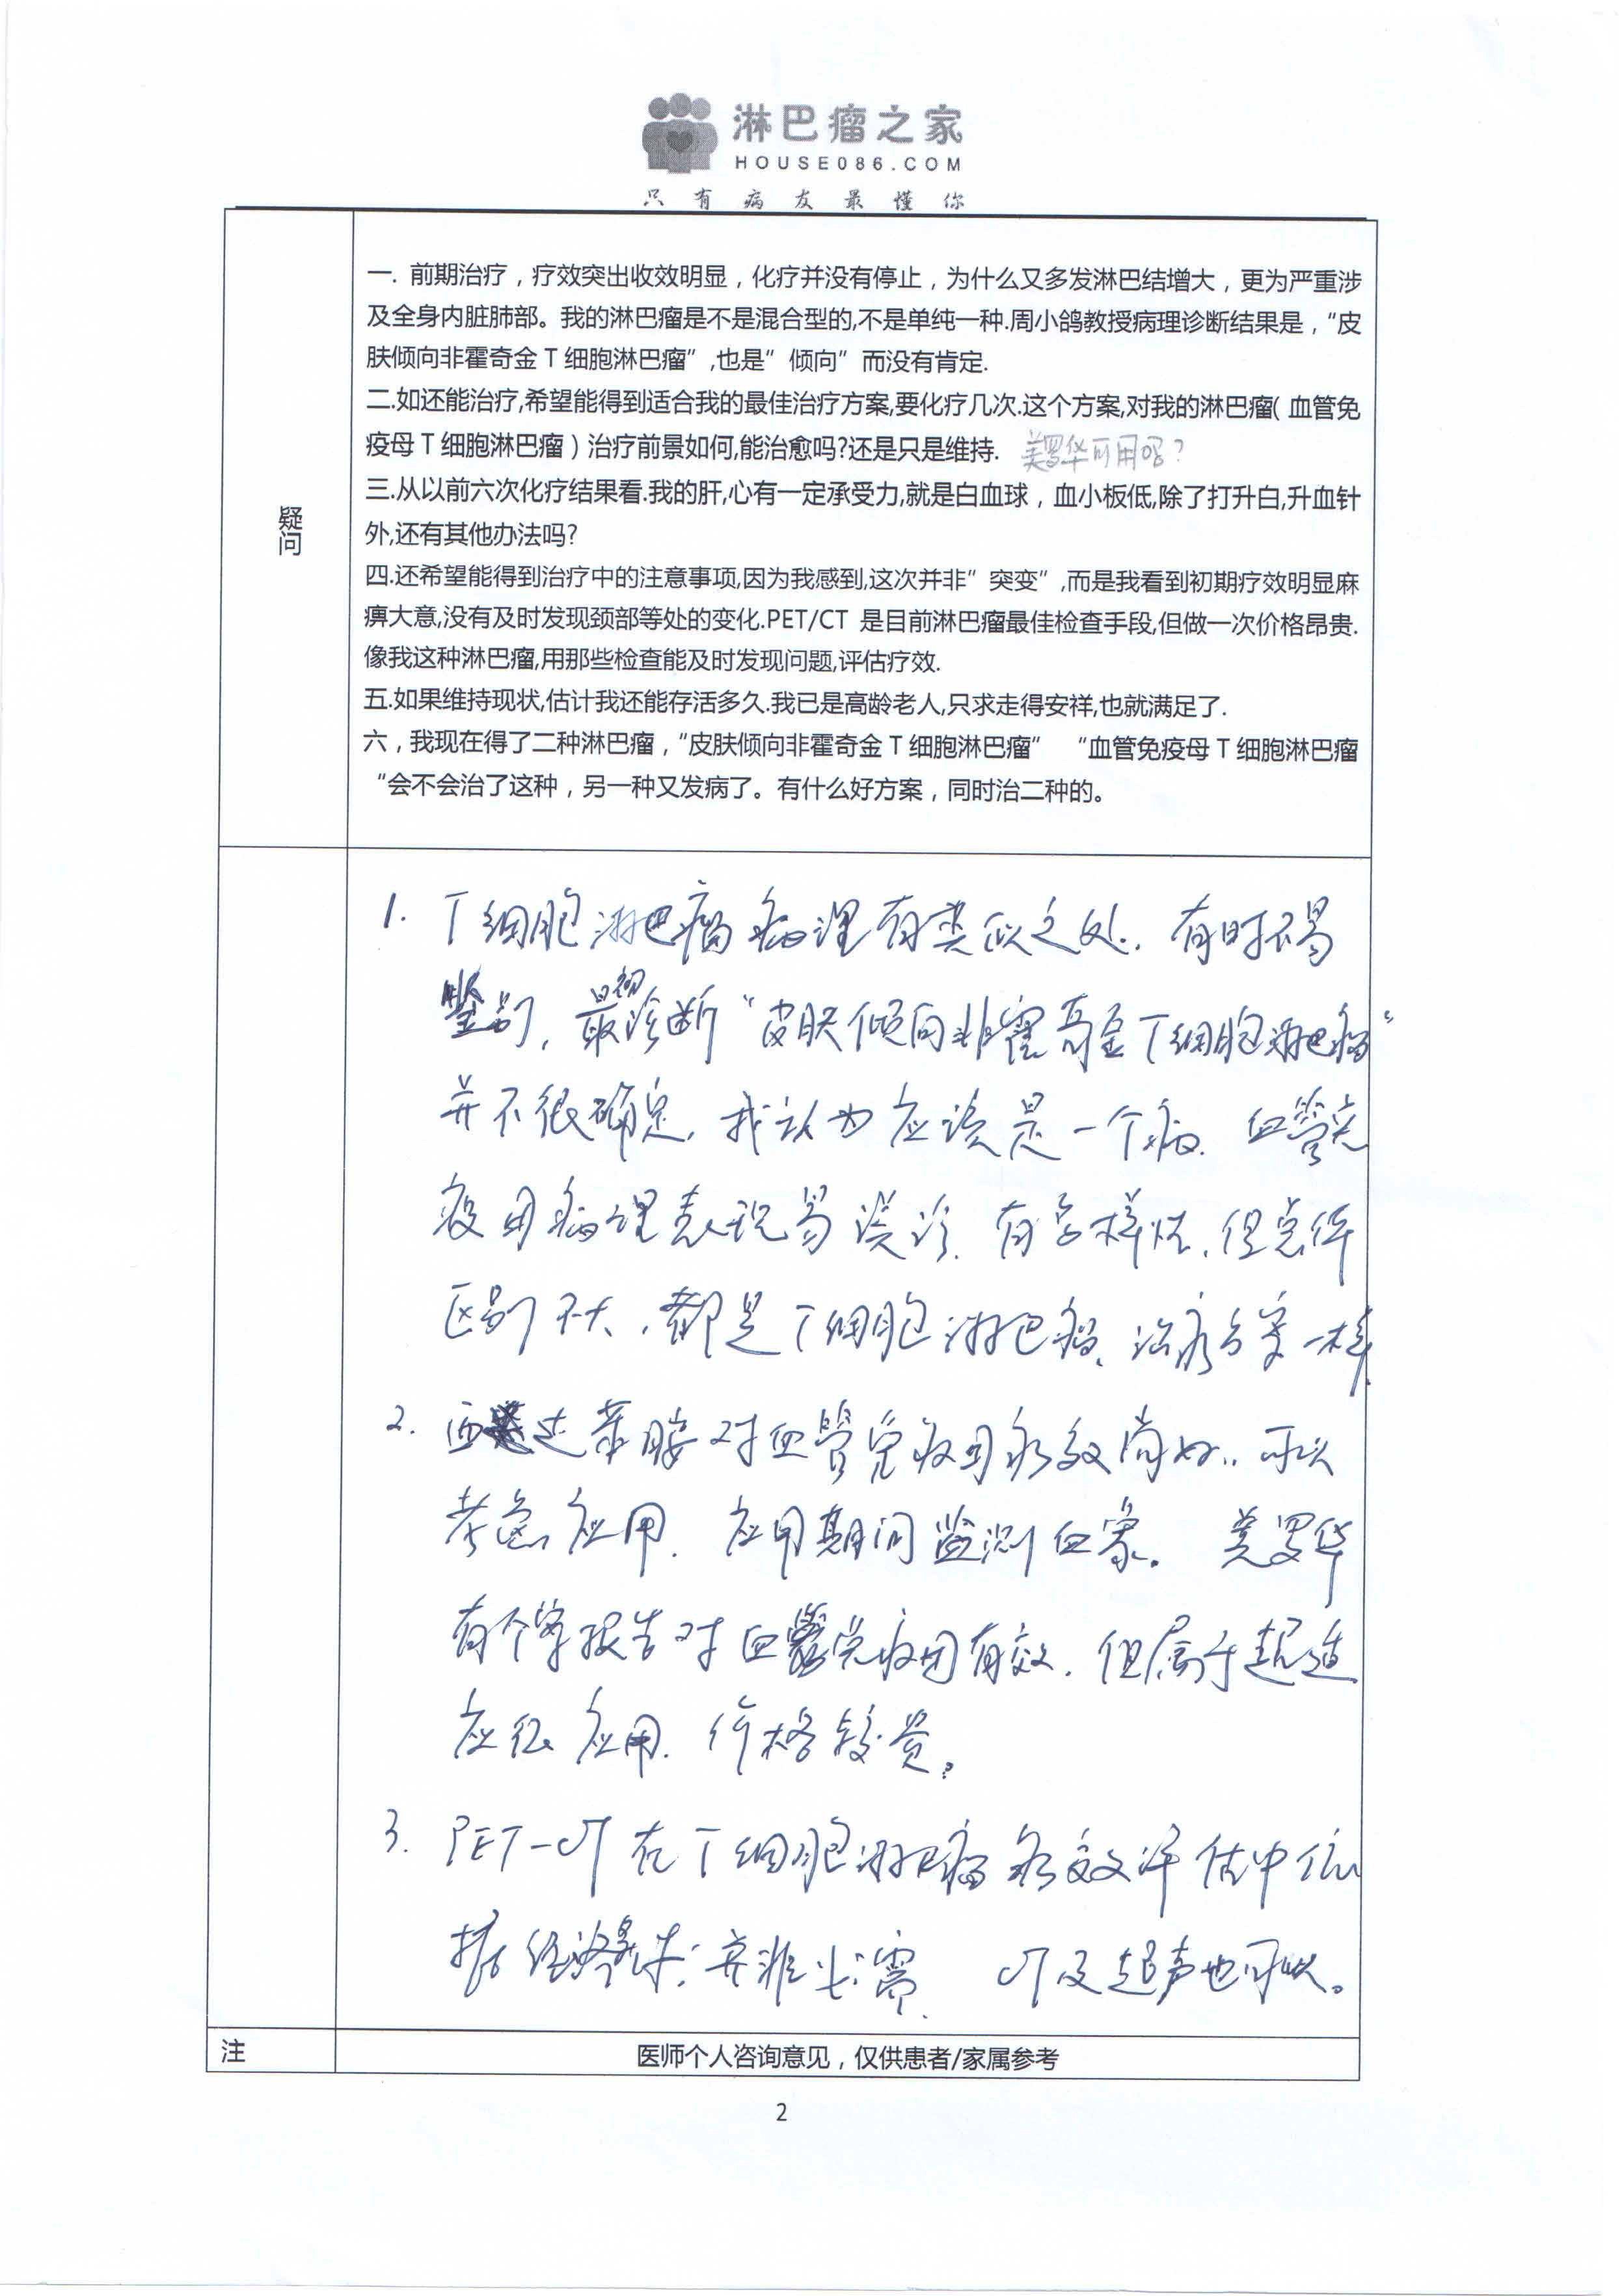 淋巴瘤之家
HOUSE086.COM
只有病友最懂你
疑问
一. 前期治疗，疗效突出收效明显，化疗并没有停止，为什么又多发淋巴结增大，更为严重涉
及全身内脏肺部。我的淋巴瘤是不是混合型的,不是单纯一种.周小鸽教授病理诊断结果是，“皮
肤倾向非霍奇金 T 细胞淋巴瘤”,也是”倾向”而没有肯定.
二.如还能治疗,希望能得到适合我的最佳治疗方案,要化疗几次.这个方案,对我的淋巴瘤( 血管免
疫母 T 细胞淋巴瘤 ) 治疗前景如何,能治愈吗?还是只是维持. 美罗华可用吗?
三.从以前六次化疗结果看.我的肝,心有一定承受力,就是白血球，血小板低,除了打升白,升血针
外,还有其他办法吗?
四.还希望能得到治疗中的注意事项,因为我感到,这次并非”突变”,而是我看到初期疗效明显麻
痹大意,没有及时发现颈部等处的变化.PET/CT 是目前淋巴瘤最佳检查手段,但做一次价格昂贵.
像我这种淋巴瘤,用那些检查能及时发现问题,评估疗效.
五.如果维持现状,估计我还能存活多久.我已是高龄老人,只求走得安祥,也就满足了.
六，我现在得了二种淋巴瘤，“皮肤倾向非霍奇金 T 细胞淋巴瘤” “血管免疫母 T 细胞淋巴瘤
“会不会治了这种，另一种又发病了。有什么好方案，同时治二种的。
1. T细胞淋巴瘤病理有类似之处. 有时不易
鉴别, 最初诊断“皮肤倾向非霍奇金T细胞淋巴瘤”
并不很确定, 我认为应该是一个病. 血管免
疫母病理表现易误诊. 有多样性, 但总体
区别不大, 都是T细胞淋巴瘤, 治疗方案一样.
2. 西达苯胺对血管免疫母疗效尚好, 可以
考虑应用. 应用期间监测血象。 美罗华
有个案报告对血管免疫母有效, 但属于超适
应征应用. 价格较贵。
3. PET-CT在T细胞淋巴瘤疗效评估中依
据经济条件, 并非必需. CT及超声也可以。
注
医师个人咨询意见，仅供患者/家属参考
2